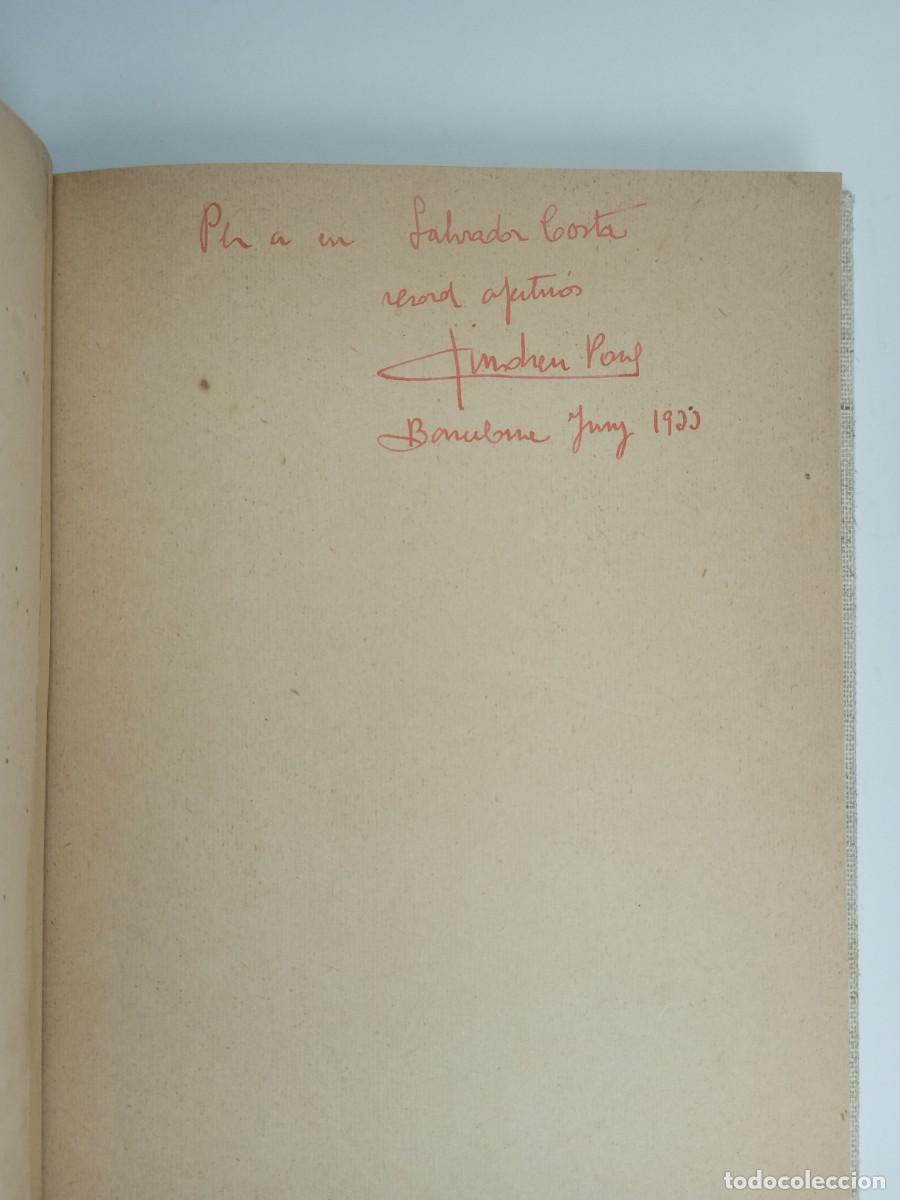 Per a en Salvador Costa
record afectuós
Andreu Pons
Barcelona Juny 1933
todocoleccion